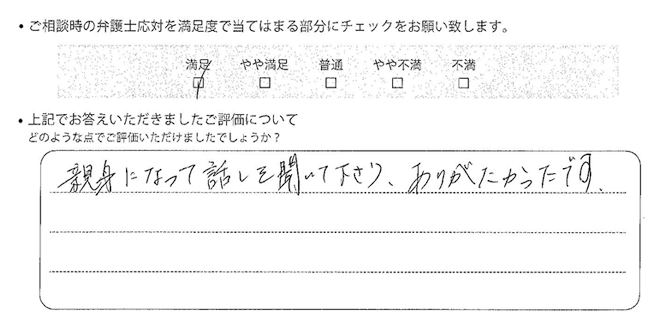 ・ご相談時の弁護士応対を満足度で当てはまる部分にチェックをお願い致します。
満足 やや満足 普通 やや不満 不満
・上記でお答えいただきましたご評価について
どのような点でご評価いただけましたでしょうか?
親身になって話しを聞いて下さり、ありがたかったです。